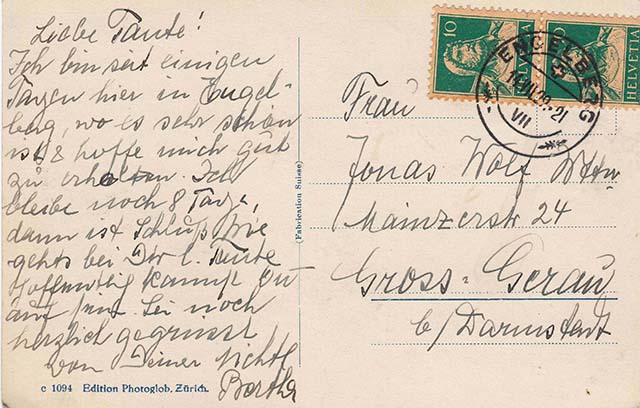 Liebe Tante!
Ich bin seit einigen
Tagen hier in Engel-
berg, wo es sehr schön
ist & hoffe mich gut
zu erholen. Ich
bleibe noch 8 Tage,
dann ist Schluß. Wie
gehts bei Dir l. Tante
Hoffentlig kannst Du
auf sein. Sei noch
herzlich gegrüsst
von Deiner Nichte
Bertha
c 1094 Edition Photoglob, Zürich.
(Fabrication Suisse)
10
HELVETIA
ENGELBERG
VII
Frau
Jonas Wolf Wtw
Mainzerstr 24
Gross-Gerau
b/Darmstadt